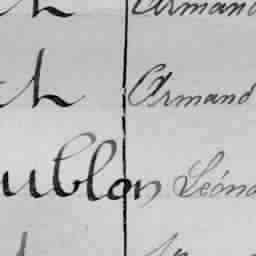 Armand
th Armand
ublon Léona